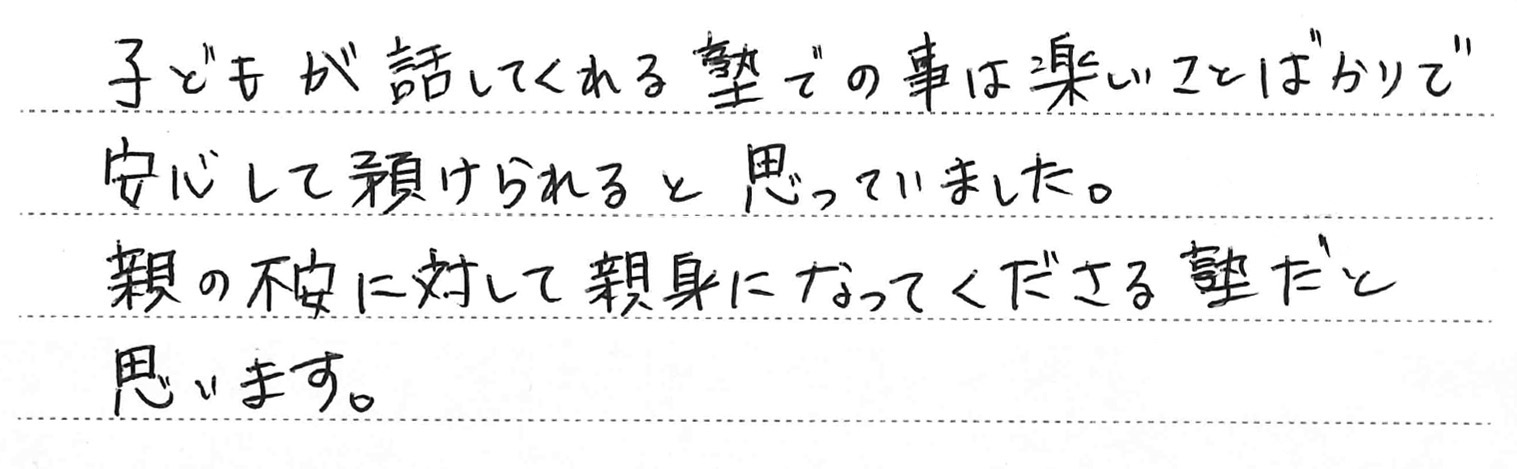 子どもが話してくれる塾での事は楽しいことばかりで
安心して預けられると思っていました。
親の不安に対して親身になってくださる塾だと
思います。